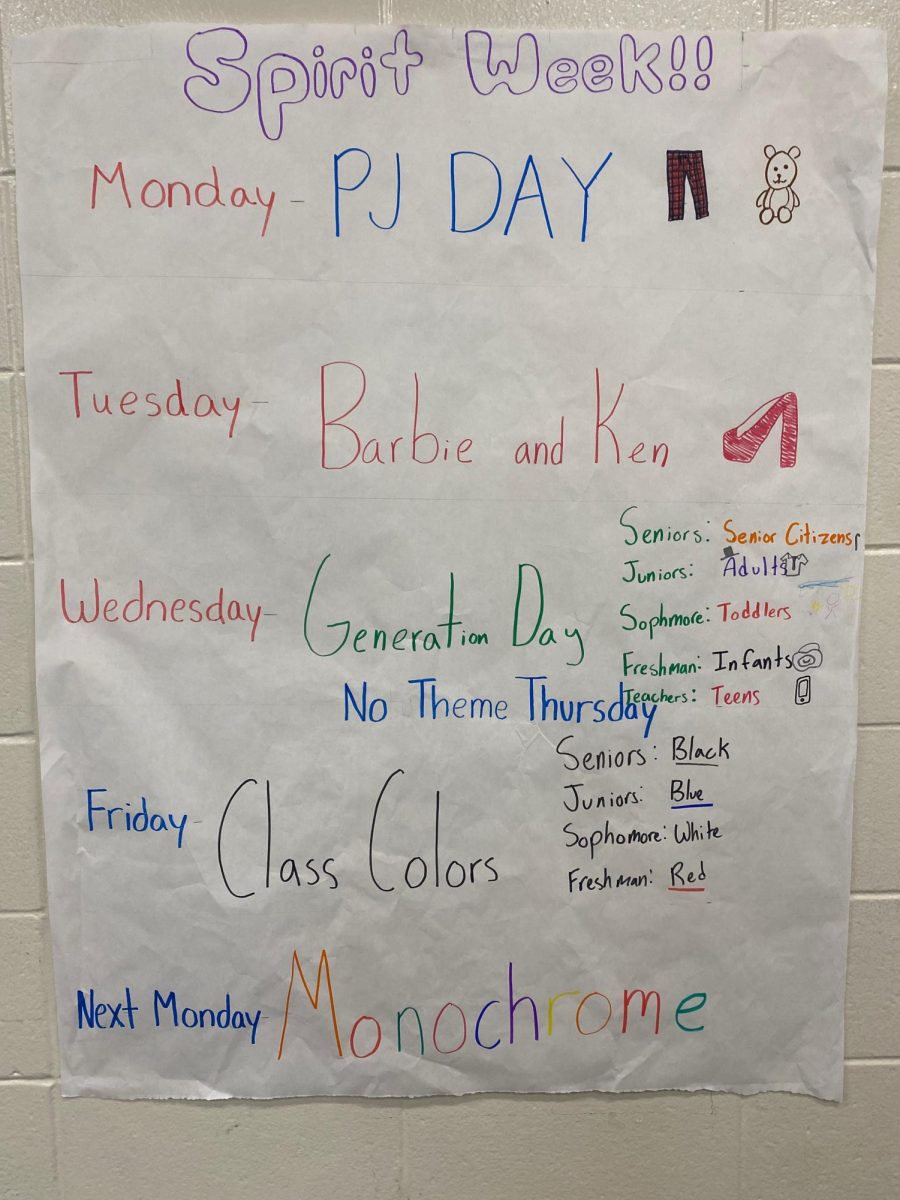 Spirit Week!!
Monday - PJ DAY
Tuesday - Barbie and Ken
Wednesday - Generation Day
Seniors: Senior Citizens
Juniors: Adults
Sophmore: Toddlers
Freshman: Infants
Teachers: Teens
No Theme Thursday
Friday - Class Colors
Seniors: Black
Juniors: Blue
Sophomore: White
Freshman: Red
Next Monday - Monochrome